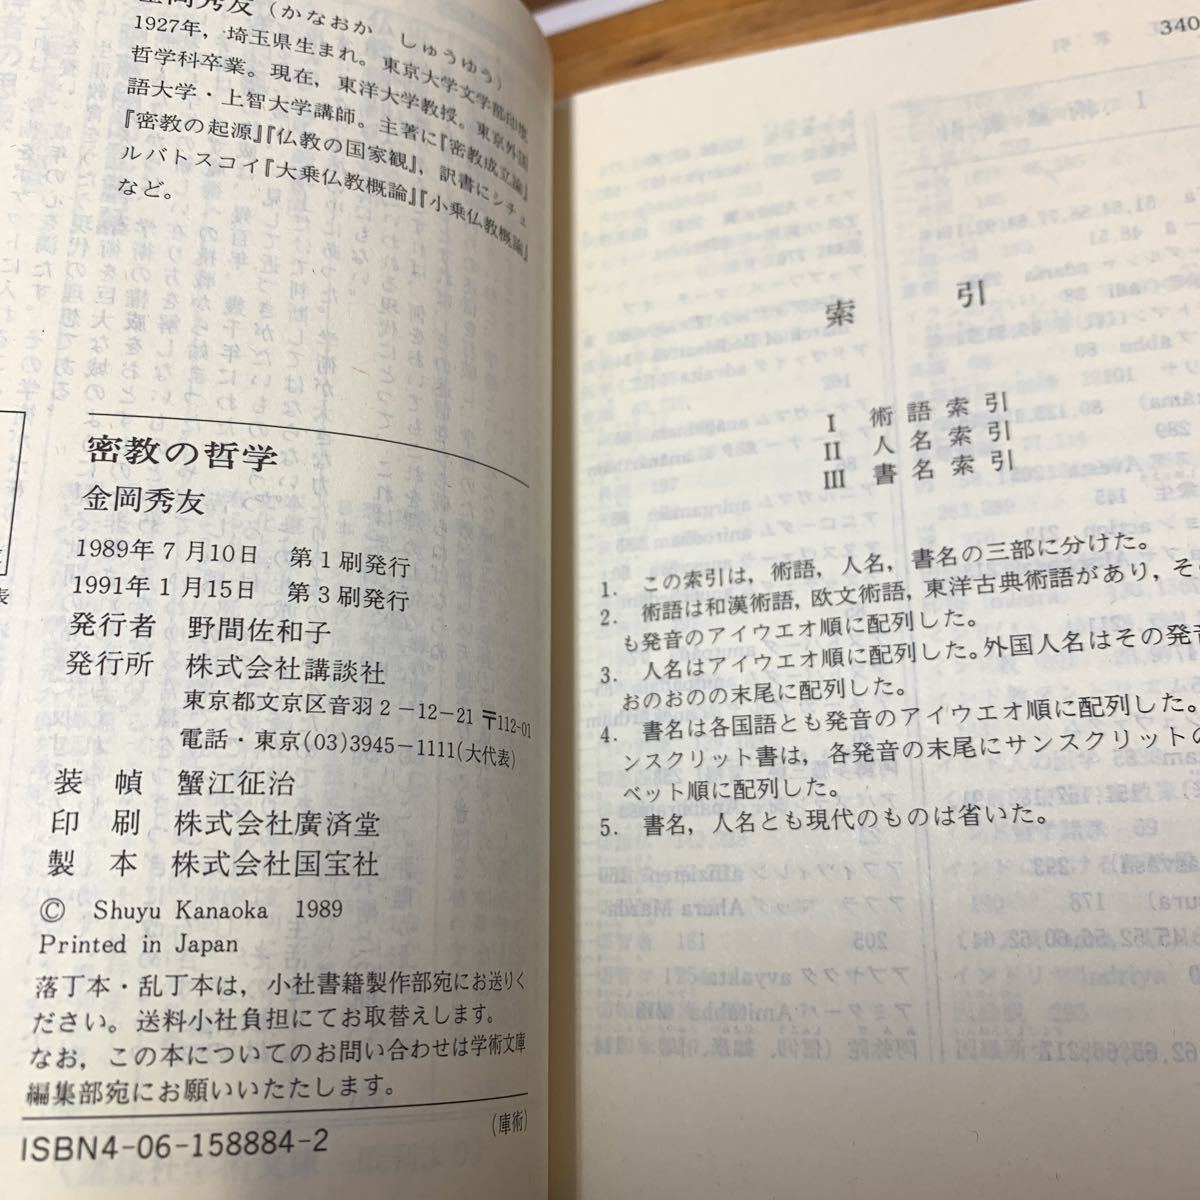 金岡秀友(かなおか しゅうゆう)
1927年,埼玉県生まれ。東京大学文学部印度
哲学科卒業。現在,東洋大学教授。東京外国
語大学・上智大学講師。主著に『密教成立論』
『密教の起源』『仏教の国家観』,訳書にシチェ
ルバトスコイ『大乗仏教概論』『小乗仏教概論』
など。
密教の哲学
金岡秀友
1989年7月10日 第1刷発行
1991年1月15日 第3刷発行
発行者 野間佐和子
発行所 株式会社講談社
東京都文京区音羽2-12-21 〒112-01
電話・東京(03)3945-1111(大代表)
装幀 蟹江征治
印刷 株式会社廣済堂
製本 株式会社国宝社
© Shuyu Kanaoka 1989
Printed in Japan
落丁本・乱丁本は,小社書籍製作部宛にお送りく
ださい。送料小社負担にてお取替えします。
なお,この本についてのお問い合わせは学術文庫
編集部宛にお願いいたします。
ISBN4-06-158884-2
(庫術)
340
索引
I 術語索引
II 人名索引
III 書名索引
1. この索引は,術語,人名,書名の三部に分けた。
2. 術語は和漢術語,欧文術語,東洋古典術語があり,その
も発音のアイウエオ順に配列した。
3. 人名はアイウエオ順に配列した。外国人名はその発音
おのおのの末尾に配列した。
4. 書名は各国語とも発音のアイウエオ順に配列した。
ンスクリット書は,各発音の末尾にサンスクリットの
ベット順に配列した。
5. 書名,人名とも現代のものは省いた。